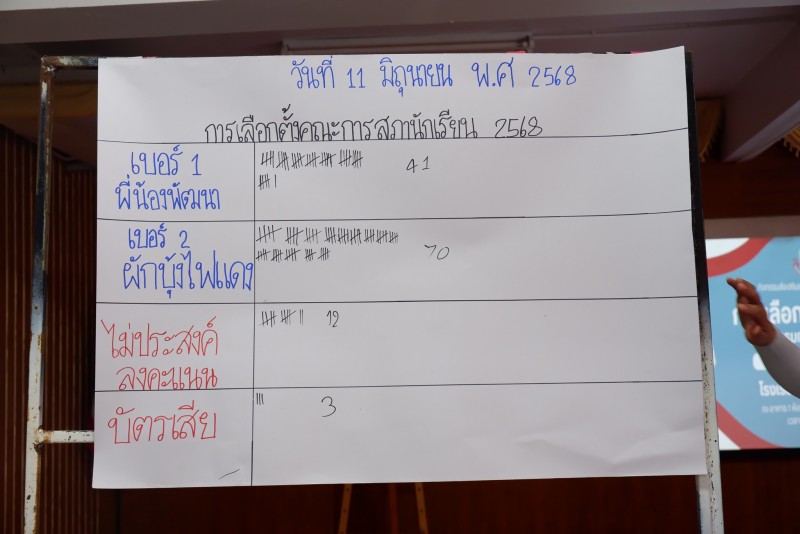 วันที่ 11 มิถุนายน พ.ศ 2568
การเลือกตั้งคณะการสภานักเรียน 2568
เบอร์ 1
พี่น้องพัฒนา
41
เบอร์ 2
ผักบุ้งไฟแดง
70
ไม่ประสงค์
ลงคะแนน
12
บัตรเสีย
3